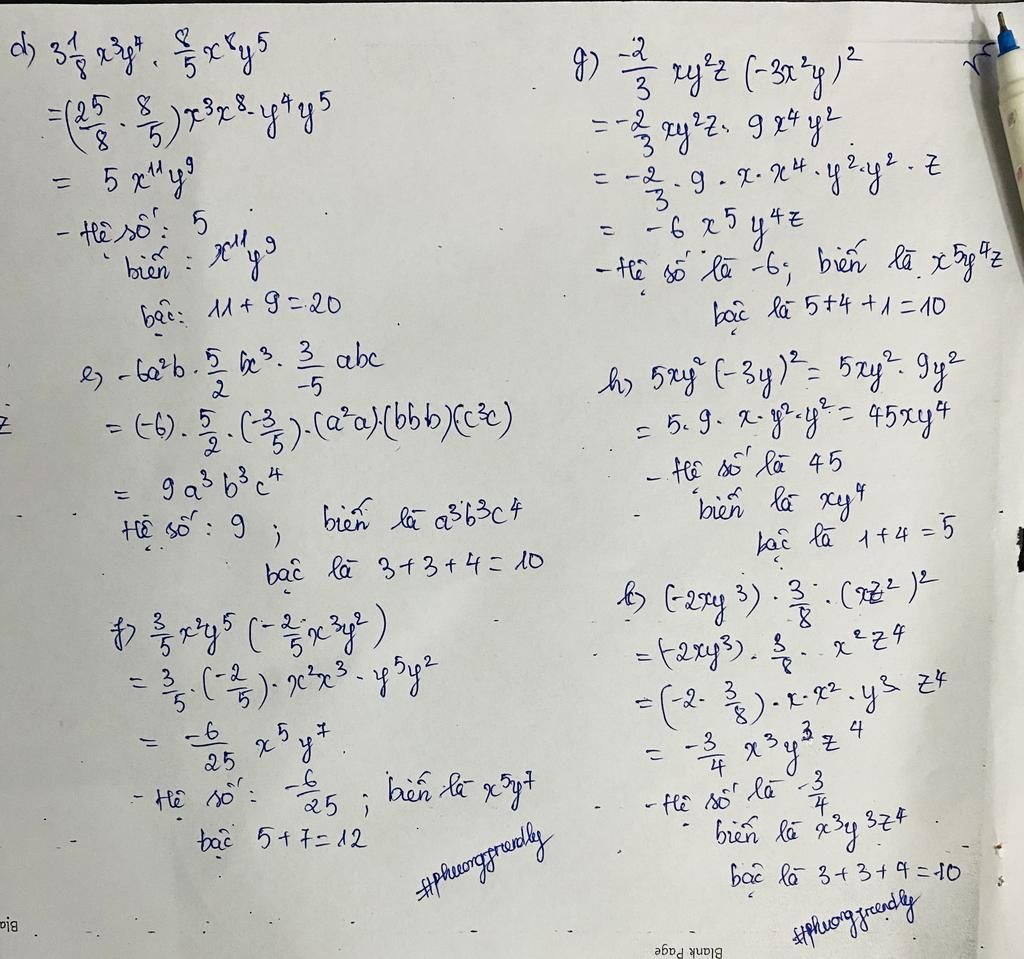 d) 3 1/8 x³y⁴ . 8/5 x⁸y⁵
= (25/8 . 8/5) x³x⁸ . y⁴y⁵
= 5 x¹¹y⁹
- Hệ số: 5
biến : x¹¹y⁹
bậc: 11 + 9 = 20
e) -6a²b . 5/2 bc³ . 3/-5 abc
= (-6) . 5/2 . (-3/5) . (a²a).(bbb)(c³c)
= 9a³b³c⁴
Hệ số: 9 ; biến là a³b³c⁴
bậc là 3 + 3 + 4 = 10
f) 3/5 x²y⁵ (-2/5 x³y²)
= 3/5 . (-2/5) . x²x³ . y⁵y²
= -6/25 x⁵y⁷.
- Hệ số: -6/25 ; biến là x⁵y⁷
bậc 5 + 7 = 12
#phuongfriendly
g) -2/3 xy²z (-3x²y)²
= -2/3 xy²z . 9x⁴y²
= -2/3 . 9 . x . x⁴ . y² . y² . z
= -6 x⁵y⁴z
- Hệ số là -6; biến là x⁵y⁴z
bậc là 5+4+1=10
h) 5xy² (-3y)² = 5xy² . 9y²
= 5. 9. x . y² . y² = 45xy⁴
- Hệ số là 45
biến là xy⁴
bậc là 1+4 = 5
(-2xy³) . 3/8 . (xz²)²
= (-2xy³) . 3/8 . x²z⁴
= (-2 . 3/8) . x . x² . y³ z⁴
= -3/4 x³y³z⁴
- Hệ số là -3/4
biến là x³y³z⁴
bậc là 3+3+4=10
#phuongfriendly
Blank Page